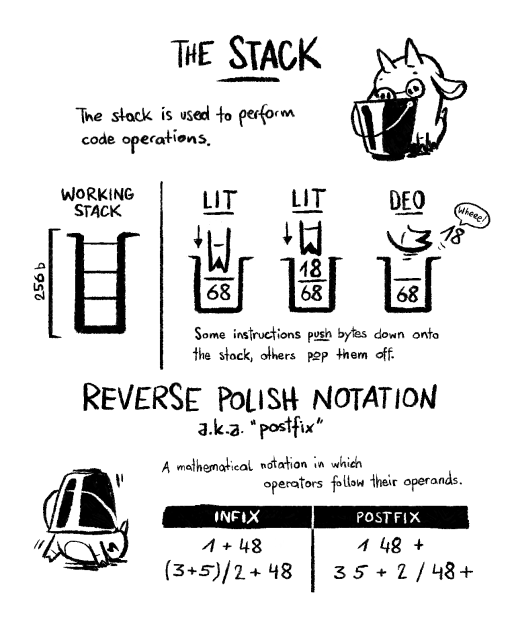 THE STACK
The stack is used to perform
code operations.
WORKING
STACK
256 b
LIT
68
LIT
18
68
DEO
Wheee!
18
68
Some instructions push bytes down onto
the stack, others pop them off.
REVERSE POLISH NOTATION
a.k.a. "postfix"
A mathematical notation in which
operators follow their operands.
INFIX POSTFIX
1 + 48 1 48 +
(3+5)/2 + 48 3 5 + 2 / 48 +